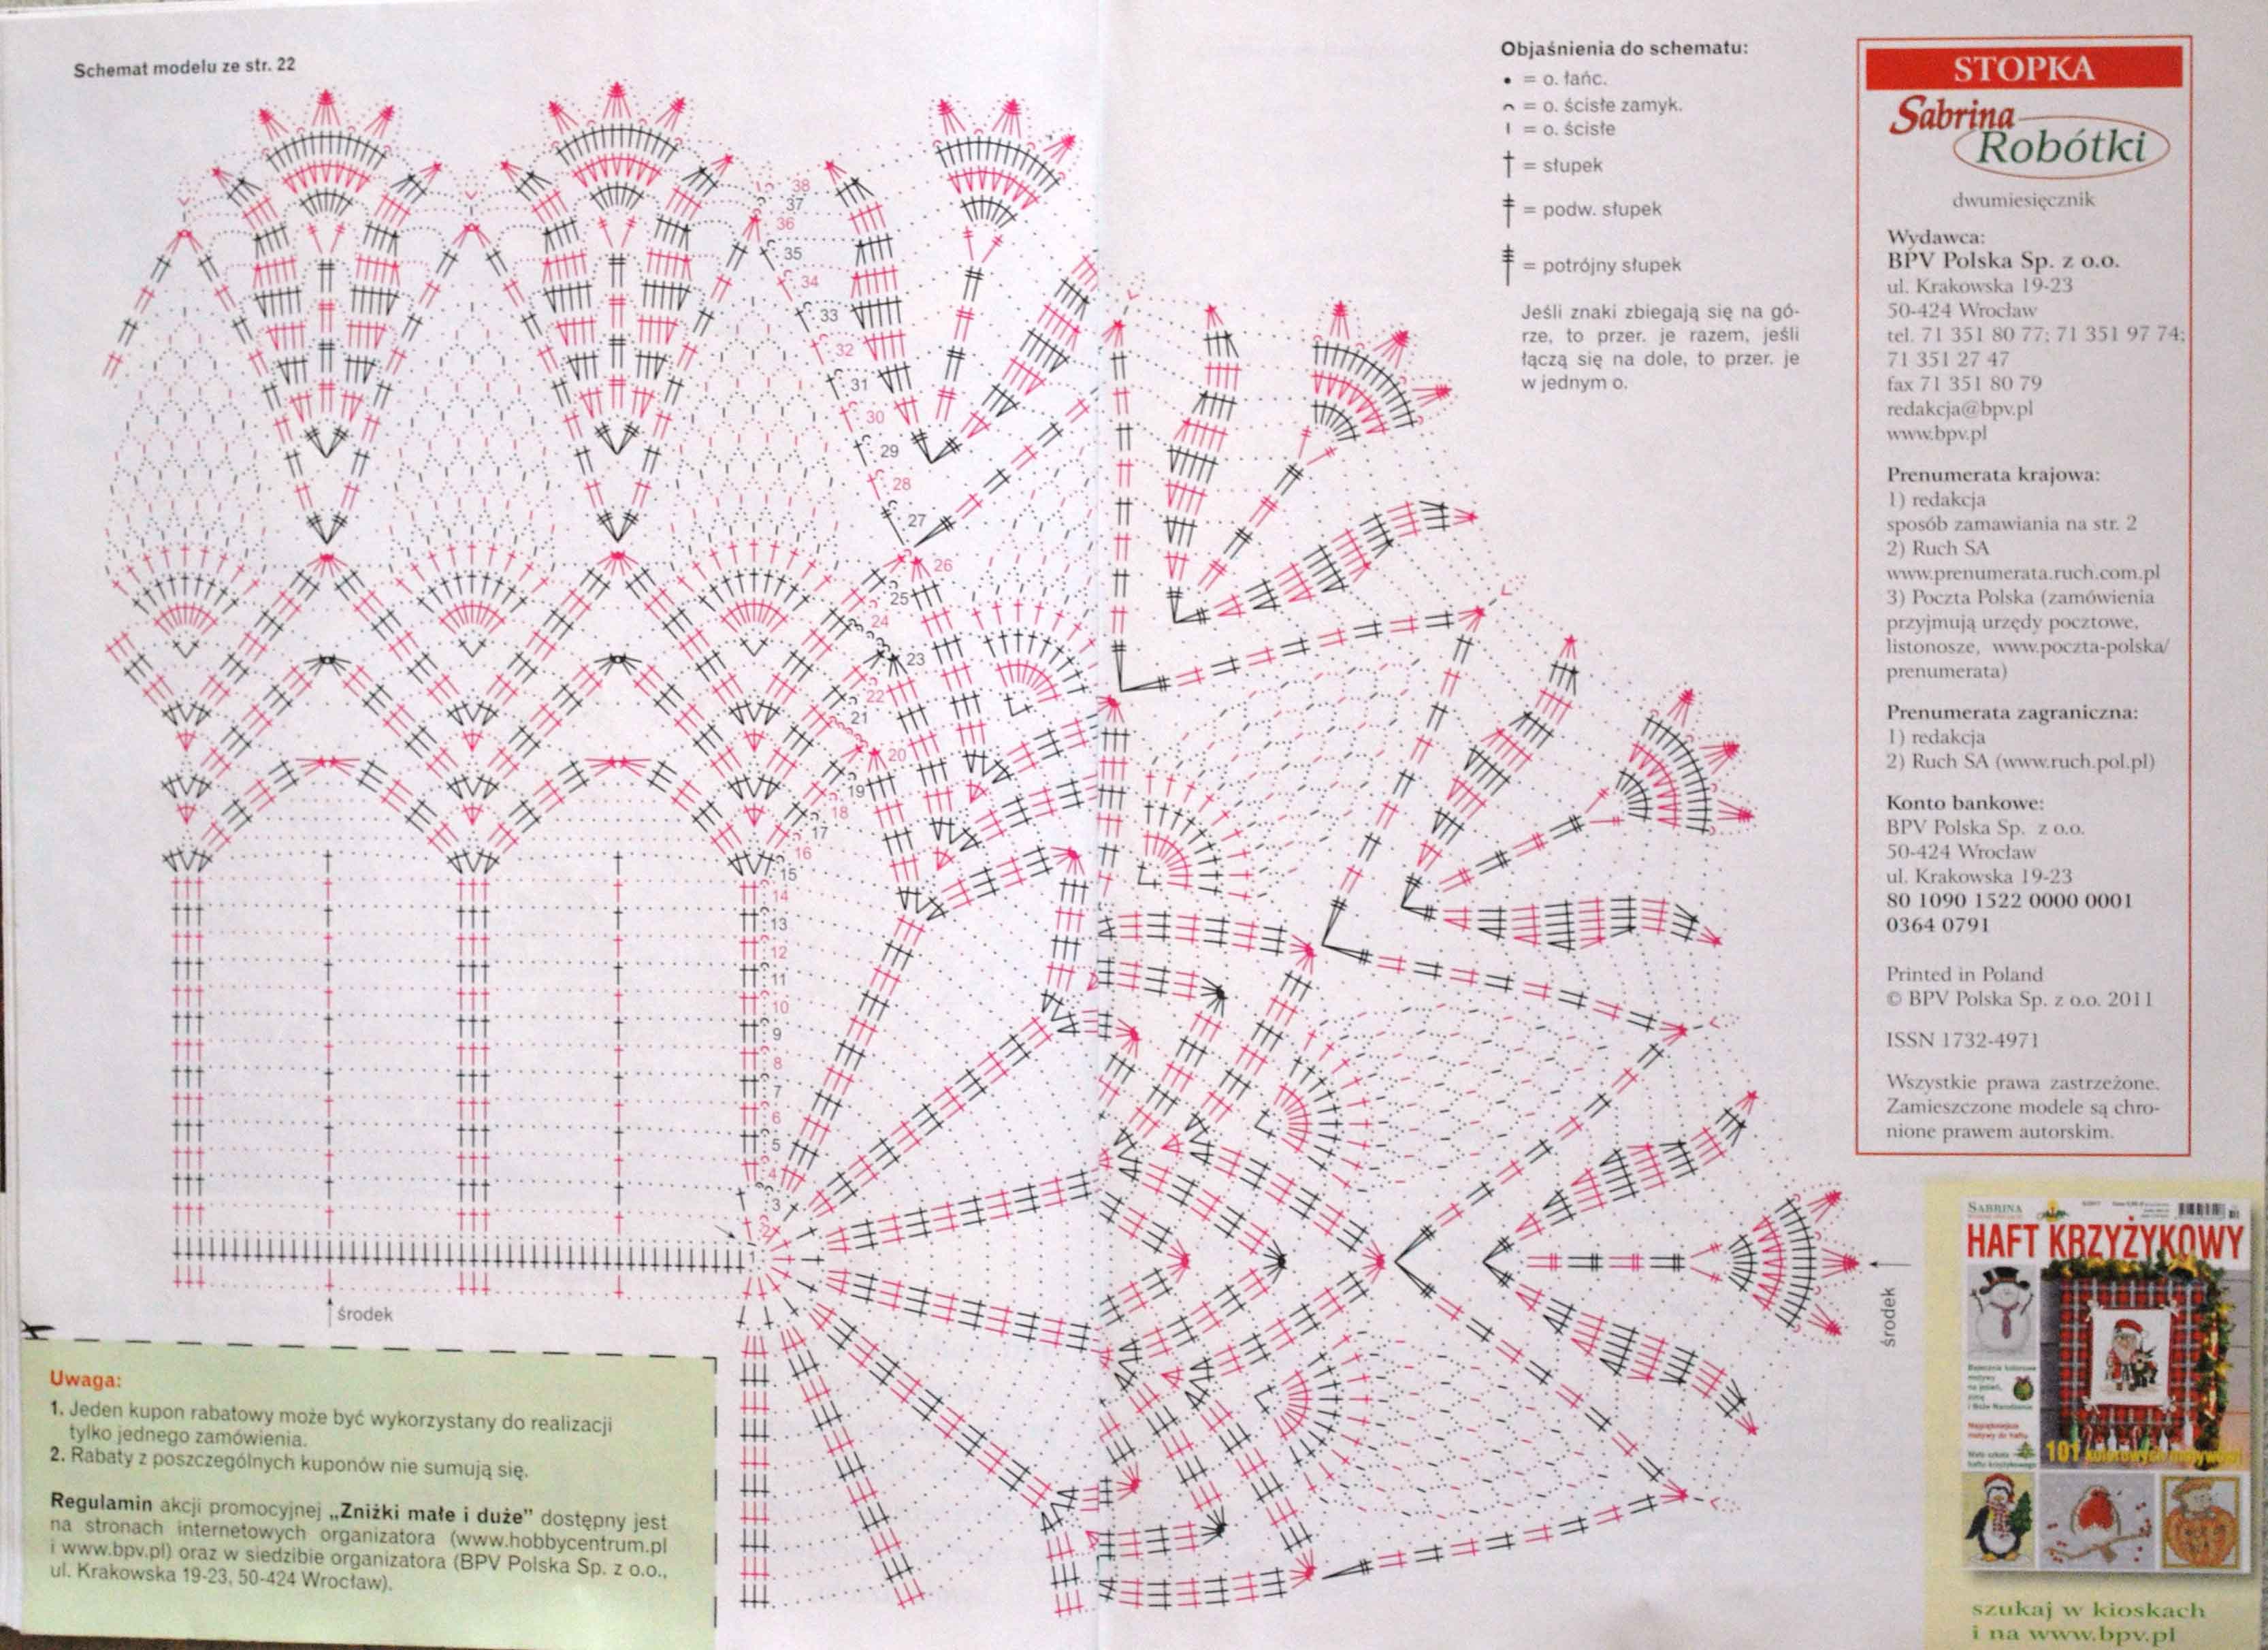 Schemat modelu ze str. 22
38
37
36
35
34
33
32
31
30
29
28
27
26
25
24
23
22
21
20
19
18
17
16
15
14
13
12
11
10
9
8
7
6
5
4
3
2
1
środek
środek
Objaśnienia do schematu:
= o. łańc.
= o. ścisłe zamyk.
= o. ścisłe
= słupek
= podw. słupek
= potrójny słupek
Jeśli znaki zbiegają się na gó-
rze, to przer. je razem, jeśli
łączą się na dole, to przer. je
w jednym o.
STOPKA
Sabrina
Robótki
dwumiesięcznik
Wydawca:
BPV Polska Sp. z o.o.
ul. Krakowska 19-23
50-424 Wrocław
tel. 71 351 80 77; 71 351 97 74;
71 351 27 47
fax 71 351 80 79
redakcja@bpv.pl
www.bpv.pl
Prenumerata krajowa:
1) redakcja
sposób zamawiania na str. 2
2) Ruch SA
www.prenumerata.ruch.com.pl
3) Poczta Polska (zamówienia
przyjmują urzędy pocztowe,
listonosze, www.poczta-polska/
prenumerata)
Prenumerata zagraniczna:
1) redakcja
2) Ruch SA (www.ruch.pol.pl)
Konto bankowe:
BPV Polska Sp. z o.o.
50-424 Wrocław
ul. Krakowska 19-23
80 1090 1522 0000 0001
0364 0791
Printed in Poland
© BPV Polska Sp. z o.o. 2011
ISSN 1732-4971
Wszystkie prawa zastrzeżone.
Zamieszczone modele są chro-
nione prawem autorskim.
Uwaga:
1. Jeden kupon rabatowy może być wykorzystany do realizacji
tylko jednego zamówienia.
2. Rabaty z poszczególnych kuponów nie sumują się.
Regulamin akcji promocyjnej „Zniżki małe i duże” dostępny jest
na stronach internetowych organizatora (www.hobbycentrum.pl
i www.bpv.pl) oraz w siedzibie organizatora (BPV Polska Sp. z o.o.,
ul. Krakowska 19-23, 50-424 Wrocław).
SABRINA
HAFT KRZYŻYKOWY
101 kolorowych motywów
szukaj w kioskach
i na www.bpv.pl